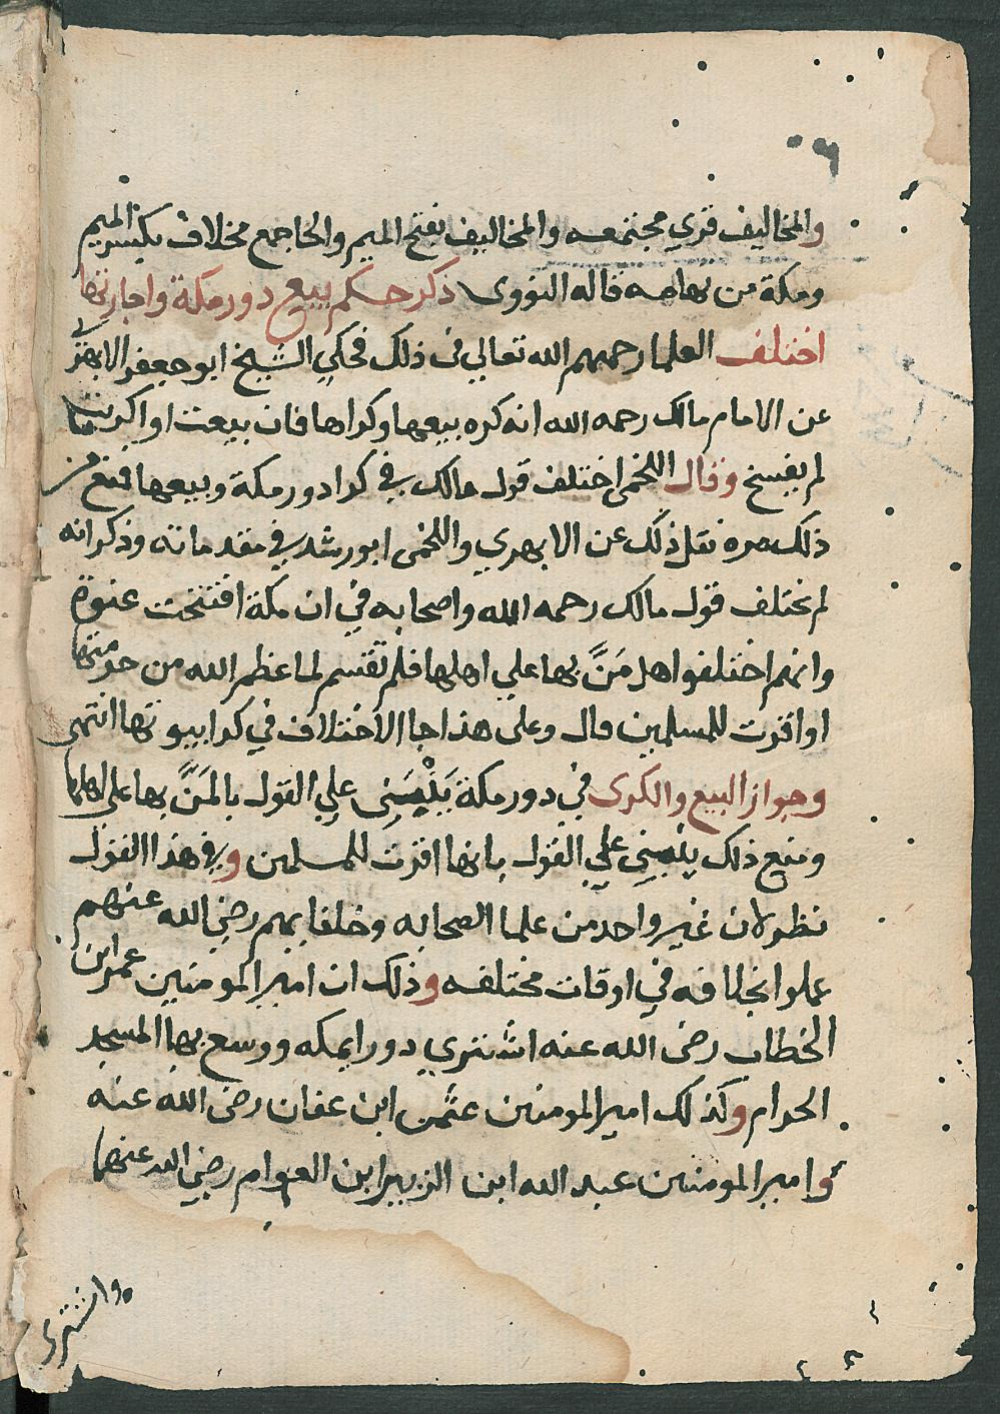 والمخاليف قري مجتمعه والمخاليف بفتح الميم والخا جمع مخلاف بكسر الميم
ومكة من تهامه قاله النووى ذكر حكم بيع دور مكة واجارتها
اختلف العلما رحمهم الله تعالي في ذلك فحكي الشيخ ابو جعفر الابهري
عن الامام مالك رحمه الله انه كره بيعها وكراها فان بيعت او اكريت
لم يفسخ وقال اللخمى اختلف قول مالك في كرا دور مكة وبيعها فمنع من
ذلك مره نقل ذلك عن الابهري واللخمى ابو رشد في مقدماته وذكر انه
لم يختلف قول مالك رحمه الله واصحابه في ان مكة افتتحت عنوة
وانهم اختلفوا هل مَنَّ بها علي اهلها فلم تقسم لما عظم الله من حرمتها
او اقرت للمسلمين قال وعلى هذا جا الاختلاف في كرا بيوتها انتهى
وجواز البيع والكرى في دور مكة يَنْبَنِى علي القول بالمَنِّ بها على اهلها
ومنع ذلك ينبني علي القول بانها اقرت للمسلمين وفي هذا القول
نظر لان غير واحد من علما الصحابه وخلفايهم رضي الله عنهم
عملوا بخلافه في اوقات مختلفه وذلك ان امير المومنين عمر ابن
الخطاب رضى الله عنه اشتري دورا بمكه ووسع بها المسجد
الحرام وكذلك امير المومنين عثمن ابن عفان رضى الله عنه
وامير المومنين عبد الله ابن الزبير ابن العوام رضي الله عنهما
اشترى